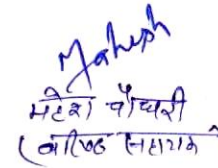 Mahesh
महेश चौधरी
(वरिष्ठ सहायक